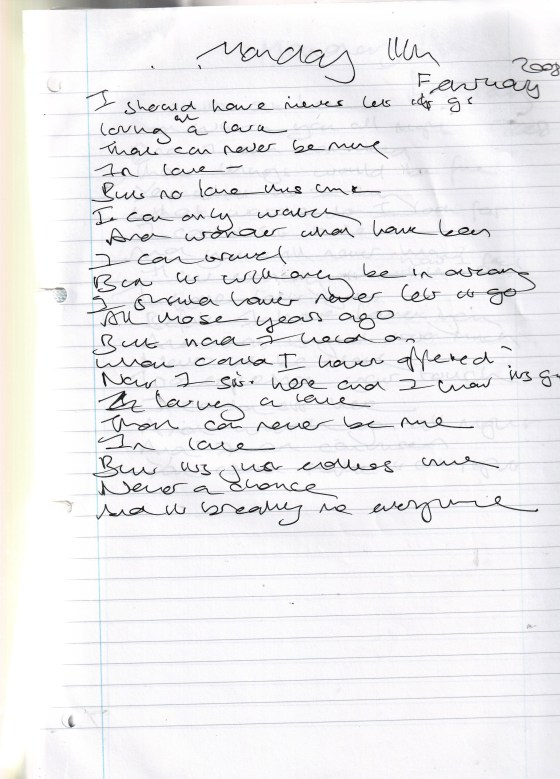 Monday 11th
February 2008
I should have never let it go
loving a love
That can never be mine
In love -
But no love this time
I can only watch
And wonder what have been
I can travel
But it will only be in a dream
I should have never let it go
All those years ago
But had I held on
what could I have offered
Now I sit here and I know its
loving a love
That can never be mine
In love
But its just endless time
Never a chance
And it breaking me everytime